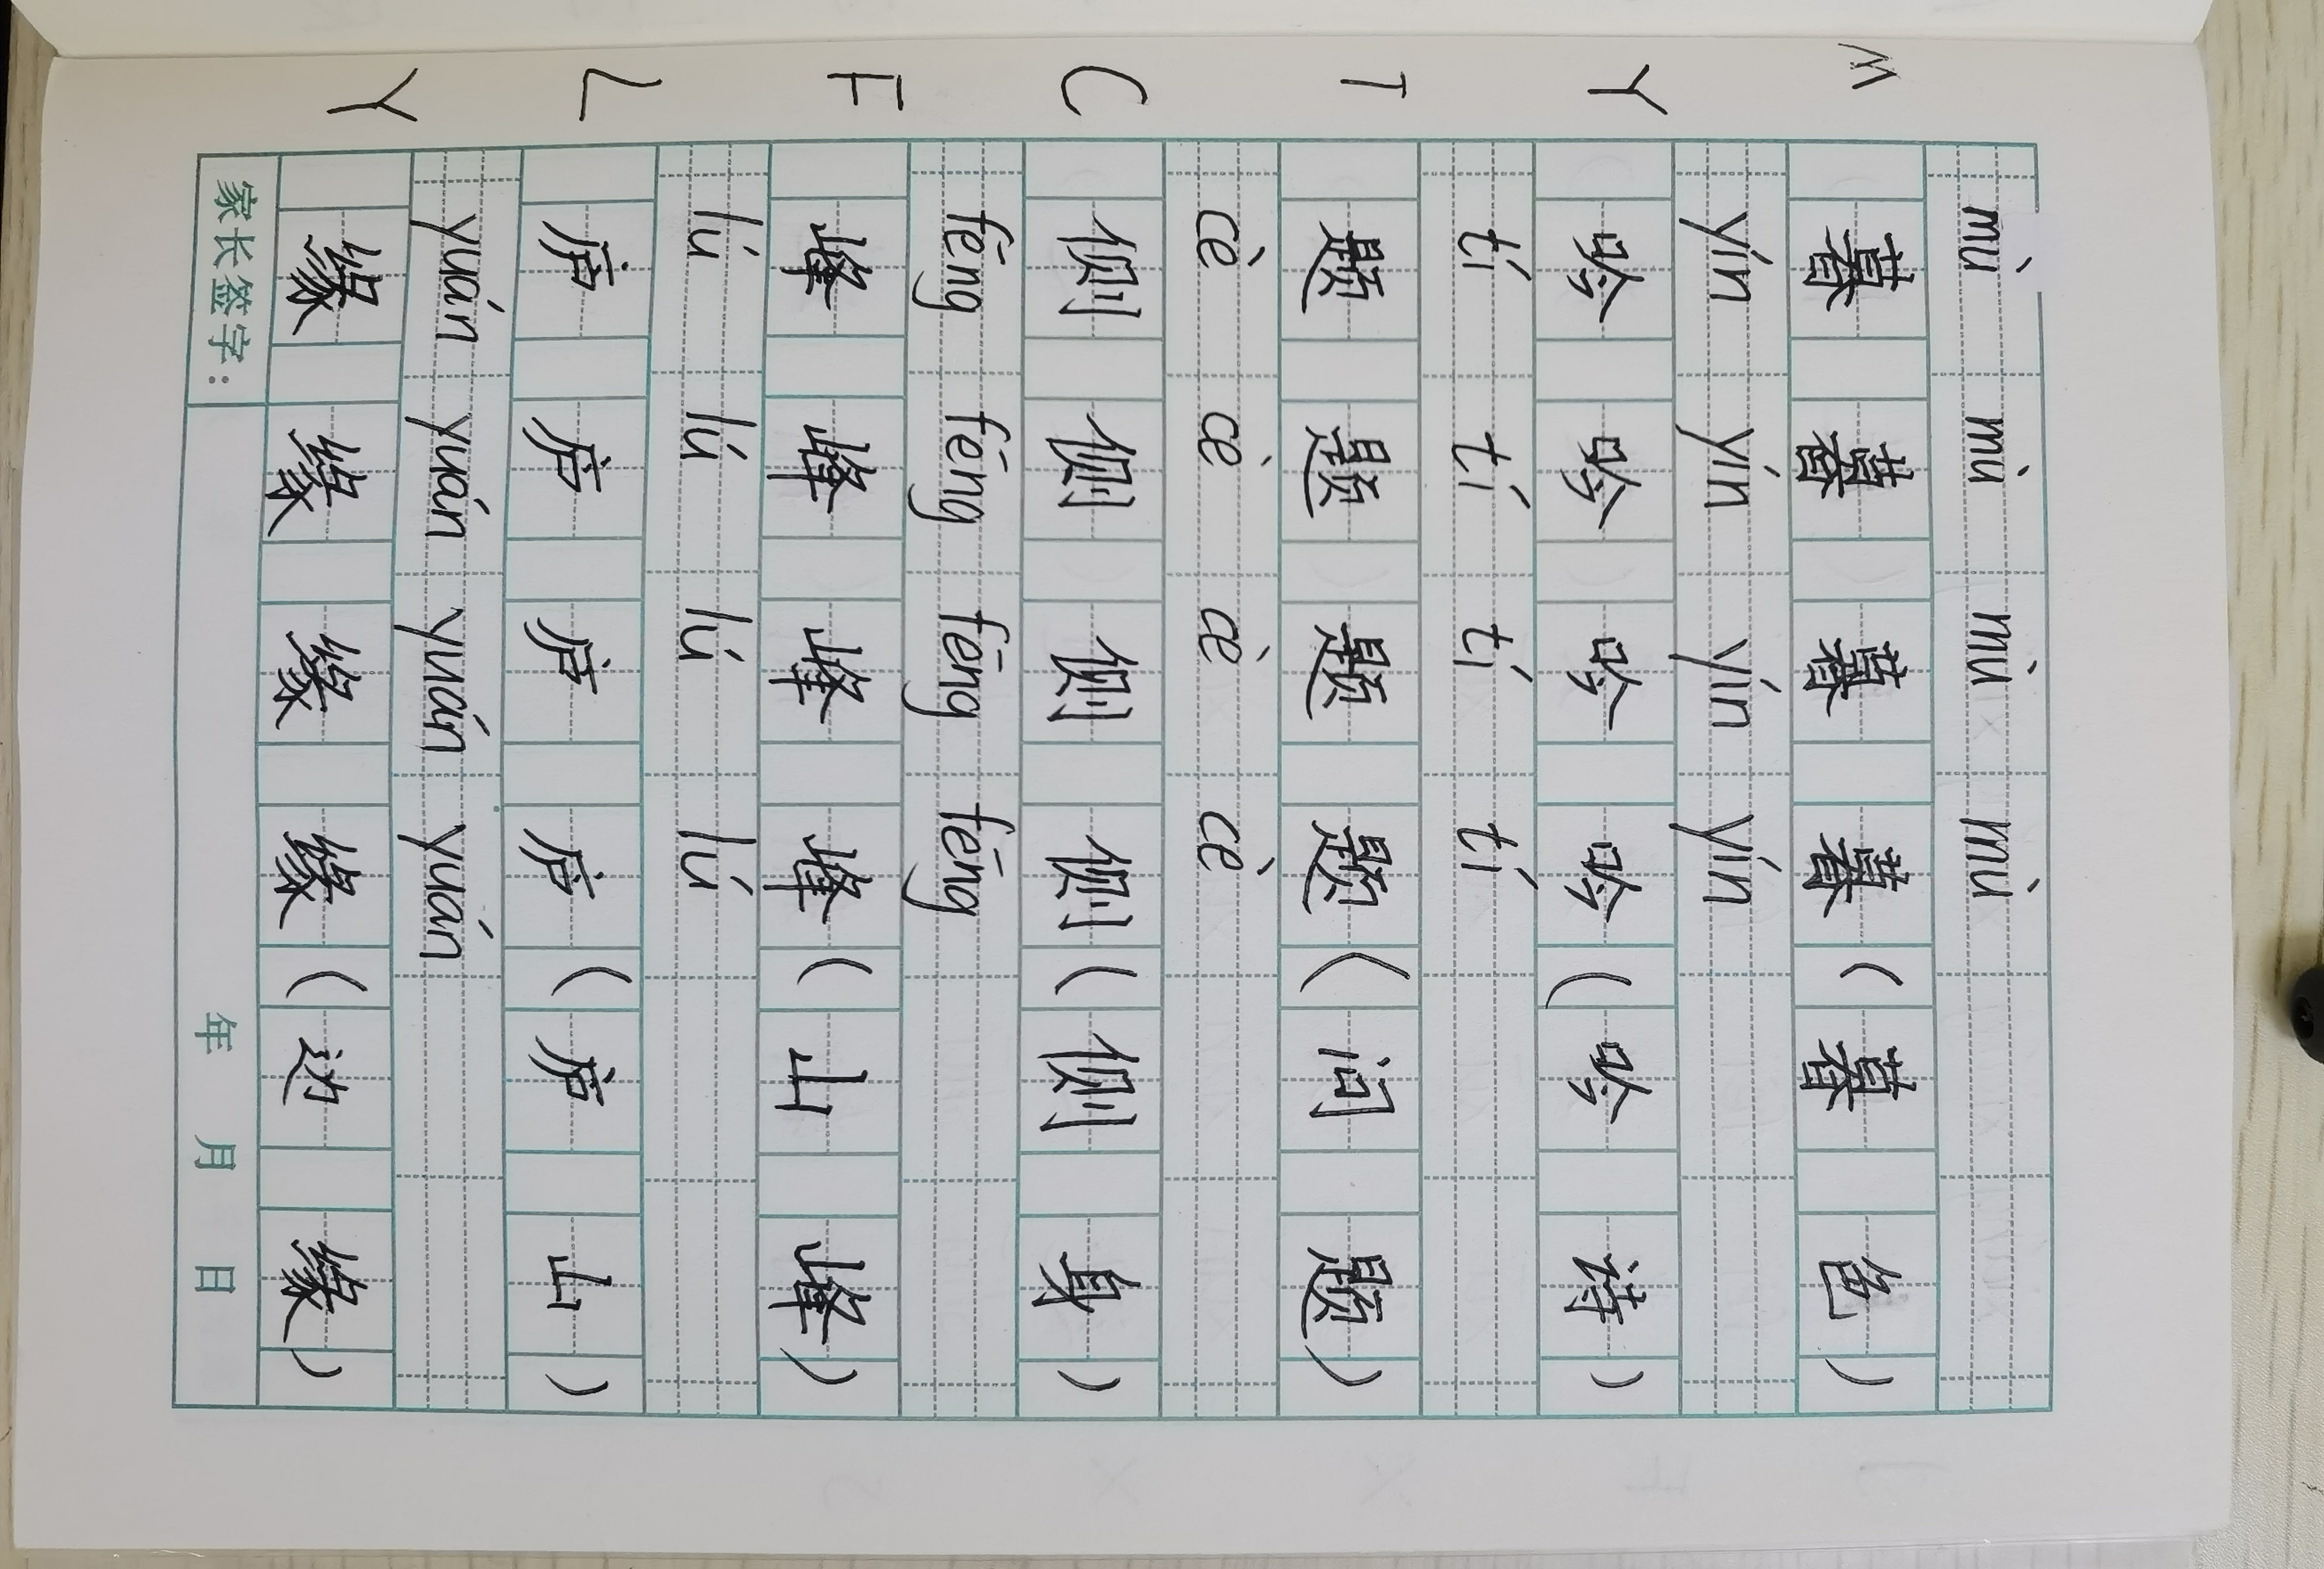 mù mù mù mù
M 暮 暮 暮 暮 ( 暮 色 )
yín yín yín yín
Y 吟 吟 吟 吟 ( 吟 诗 )
tí tí tí tí
T 题 题 题 题 ( 问 题 )
cè cè cè cè
C 侧 侧 侧 侧 ( 侧 身 )
fēng fēng fēng fēng
F 峰 峰 峰 峰 ( 山 峰 )
lú lú lú lú
L 庐 庐 庐 庐 ( 庐 山 )
yuán yuán yuán yuán
Y 缘 缘 缘 缘 ( 边 缘 )
家长签字： 年 月 日